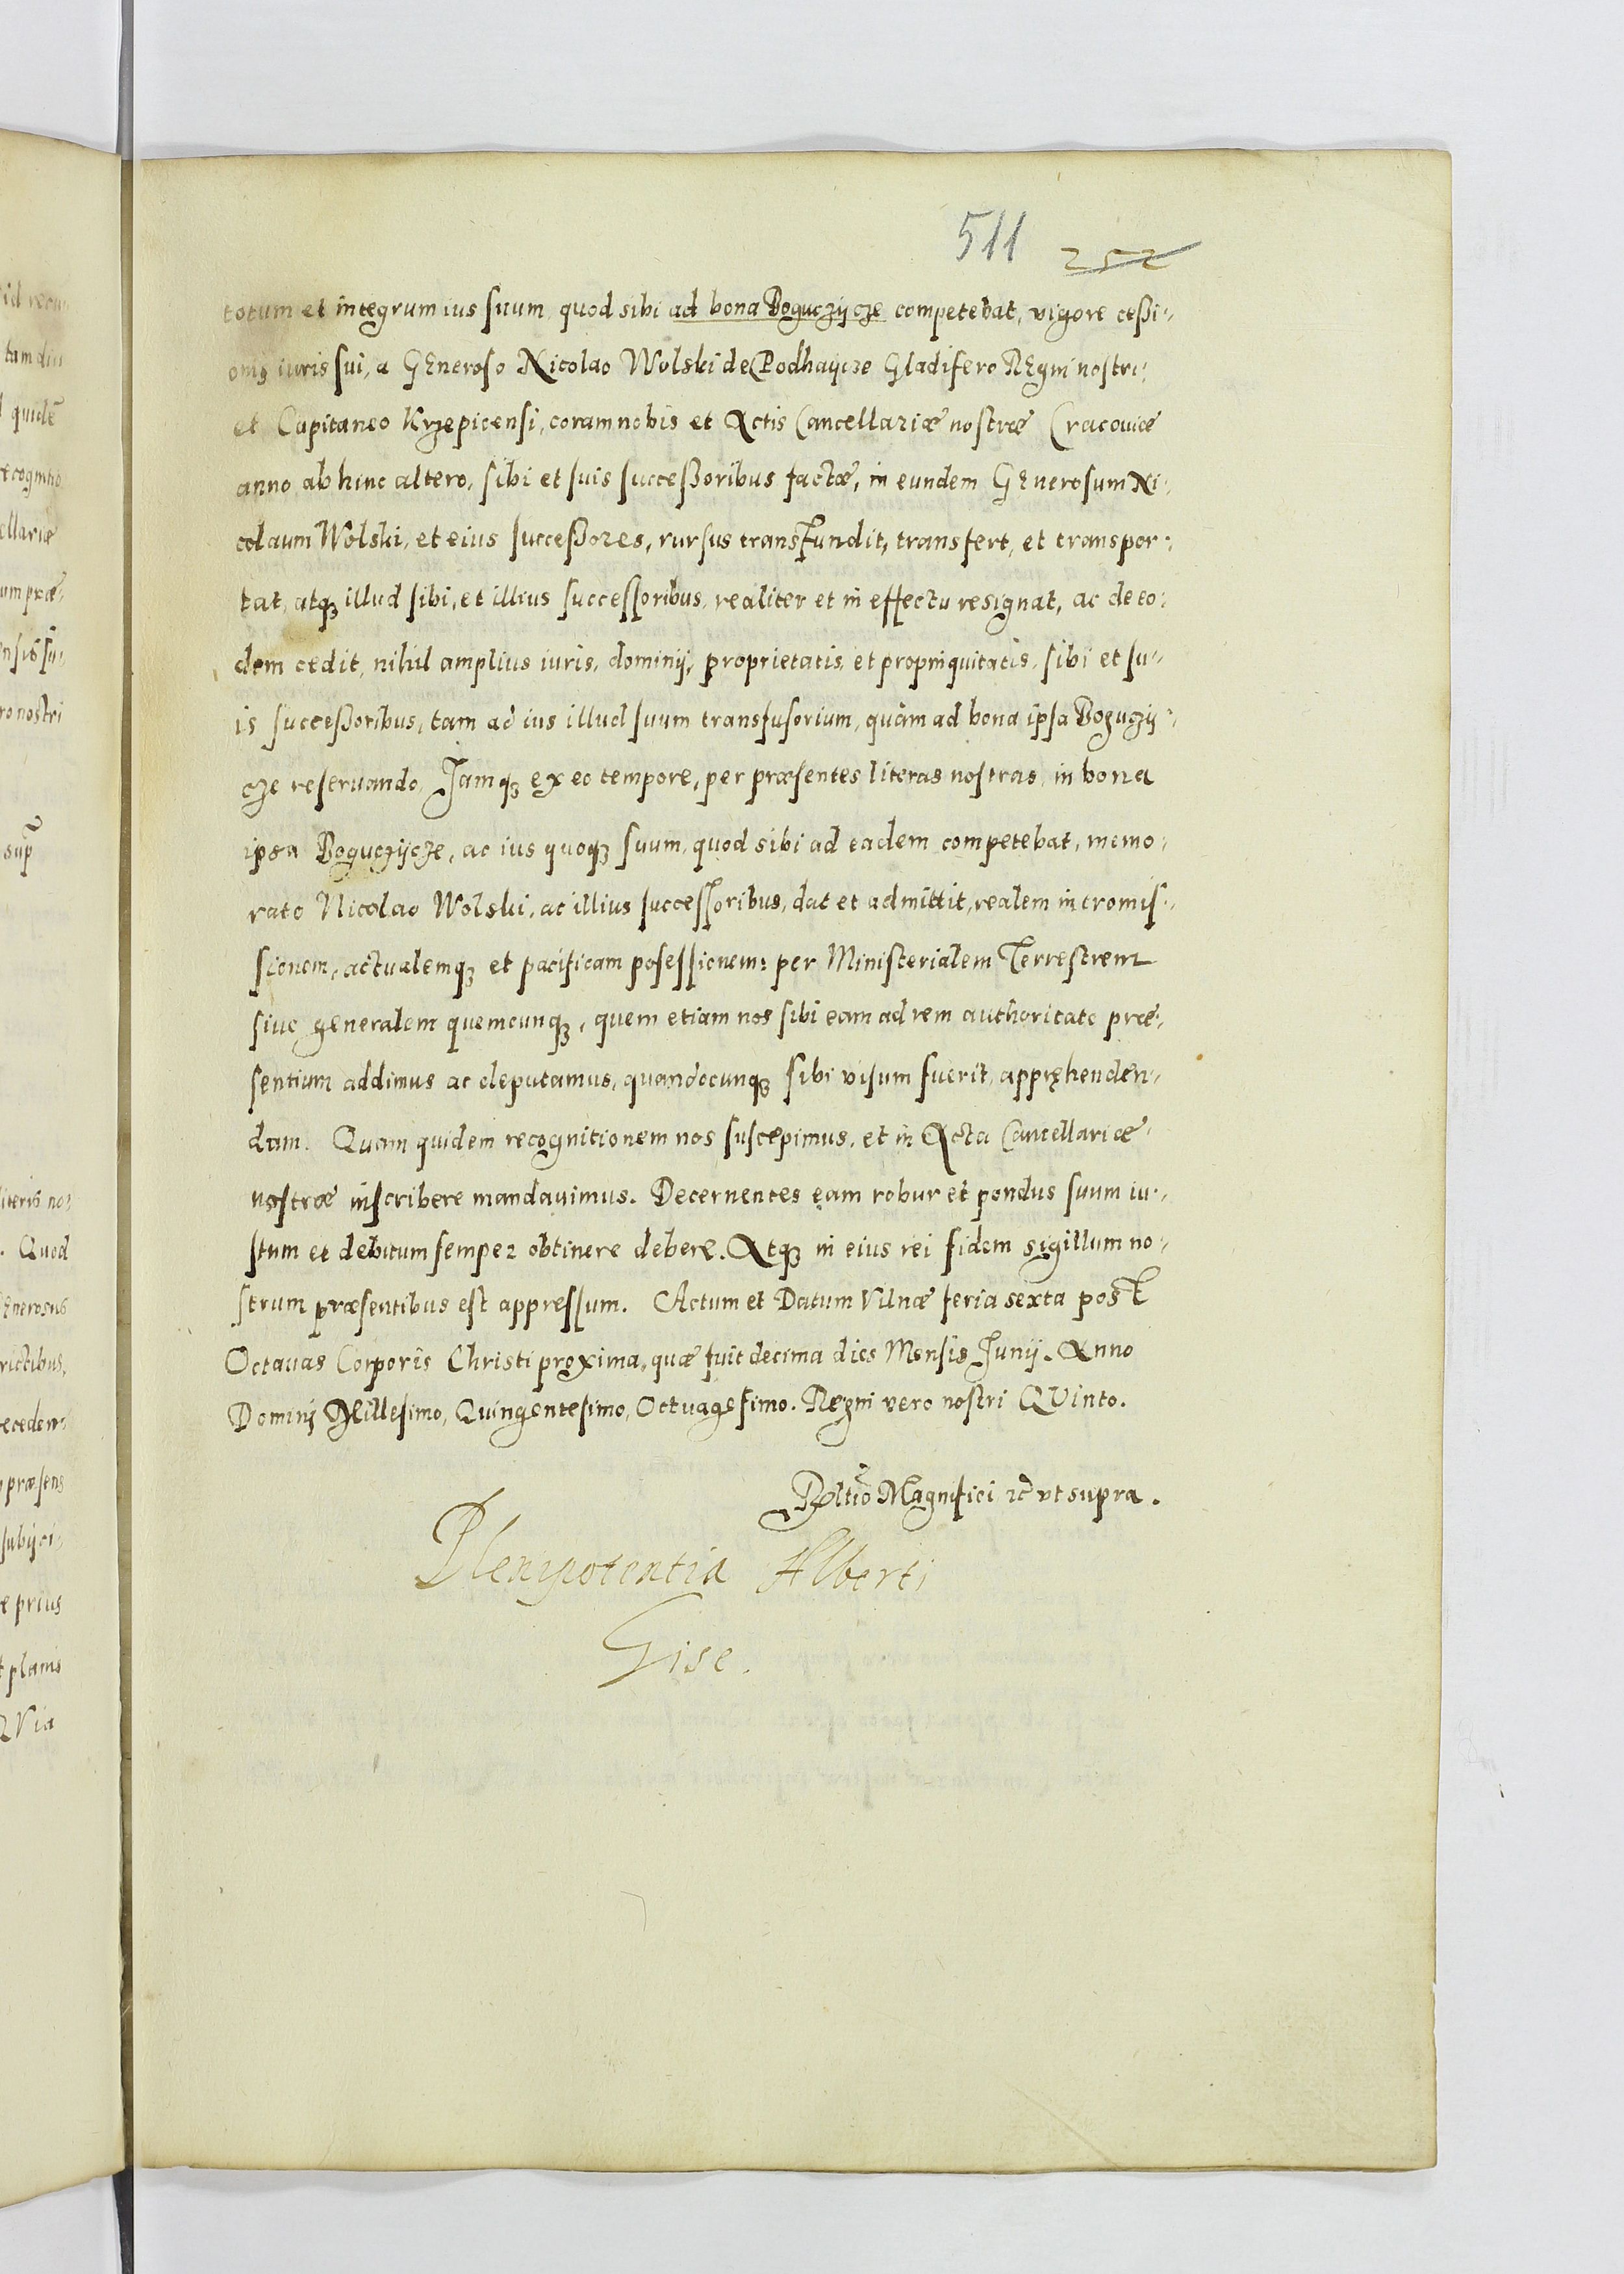 511 252
totum et integrum ius suum, quod sibi ad bona Boguczÿcze competebat, vigore ceßi-
onis iuris sui, a GEneroso Nicolao Wolski de Podhaÿcze Gladifero REgni nostri,
et Capitaneo Krzepicensi, coram nobis et Actis Cancellariæ nostræ Cracouiæ
anno abhinc altero, sibi et suis succeßoribus factæ, in eundem GEnerosum Ni-
colaum Wolski, et eius succeßores, rursus transfundit, transfert, et transpor-
tat, atqȝ illud sibi, et illius successoribus, realiter et in effectu resignat, ac de eo-
dem cedit, nihil amplius iuris, dominij, proprietatis, et propinquitatis, sibi et su-
is succeßoribus, tam ad ius illud suum transfusorium, quàm ad bona ipsa Boguczÿ-
cze reseruando. Jamqȝ ex eo tempore, per præsentes literas nostras, in bona
ipsa Boguczÿcze, ac ius quoqȝ suum, quod sibi ad eadem competebat, memo-
rato Nicolao Wolski, ac illius successoribus, dat et admittit, realem intromis-
sionem, actualemqȝ et pacificam possessionem: per Ministerialem Terrestrem
siue generalem quemcunqȝ, quem etiam nos sibi eam ad rem authoritate præ-
sentium addimus ac deputamus, quandocunqȝ sibi visum fuerit, apprehenden-
dam. Quam quidem recognitionem nos suscepimus, et in Acta Cancellariæ
nostræ inscribere mandauimus. Decernentes eam robur et pondus suum iu-
stum et debitum semper obtinere debere. Atqȝ in eius rei fidem sigillum no-
strum præsentibus est appressum. Actum et Datum Vilnæ feria sexta post
Octauas Corporis Christi proxima, quæ fuit decima dies Mensis Junij. Anno
Domini Millesimo, Quingentesimo, Octuagesimo. Regni vero nostri QVinto.
Rltio Magnifici rc vt supra.
Plenipotentia Alberti
Gise.